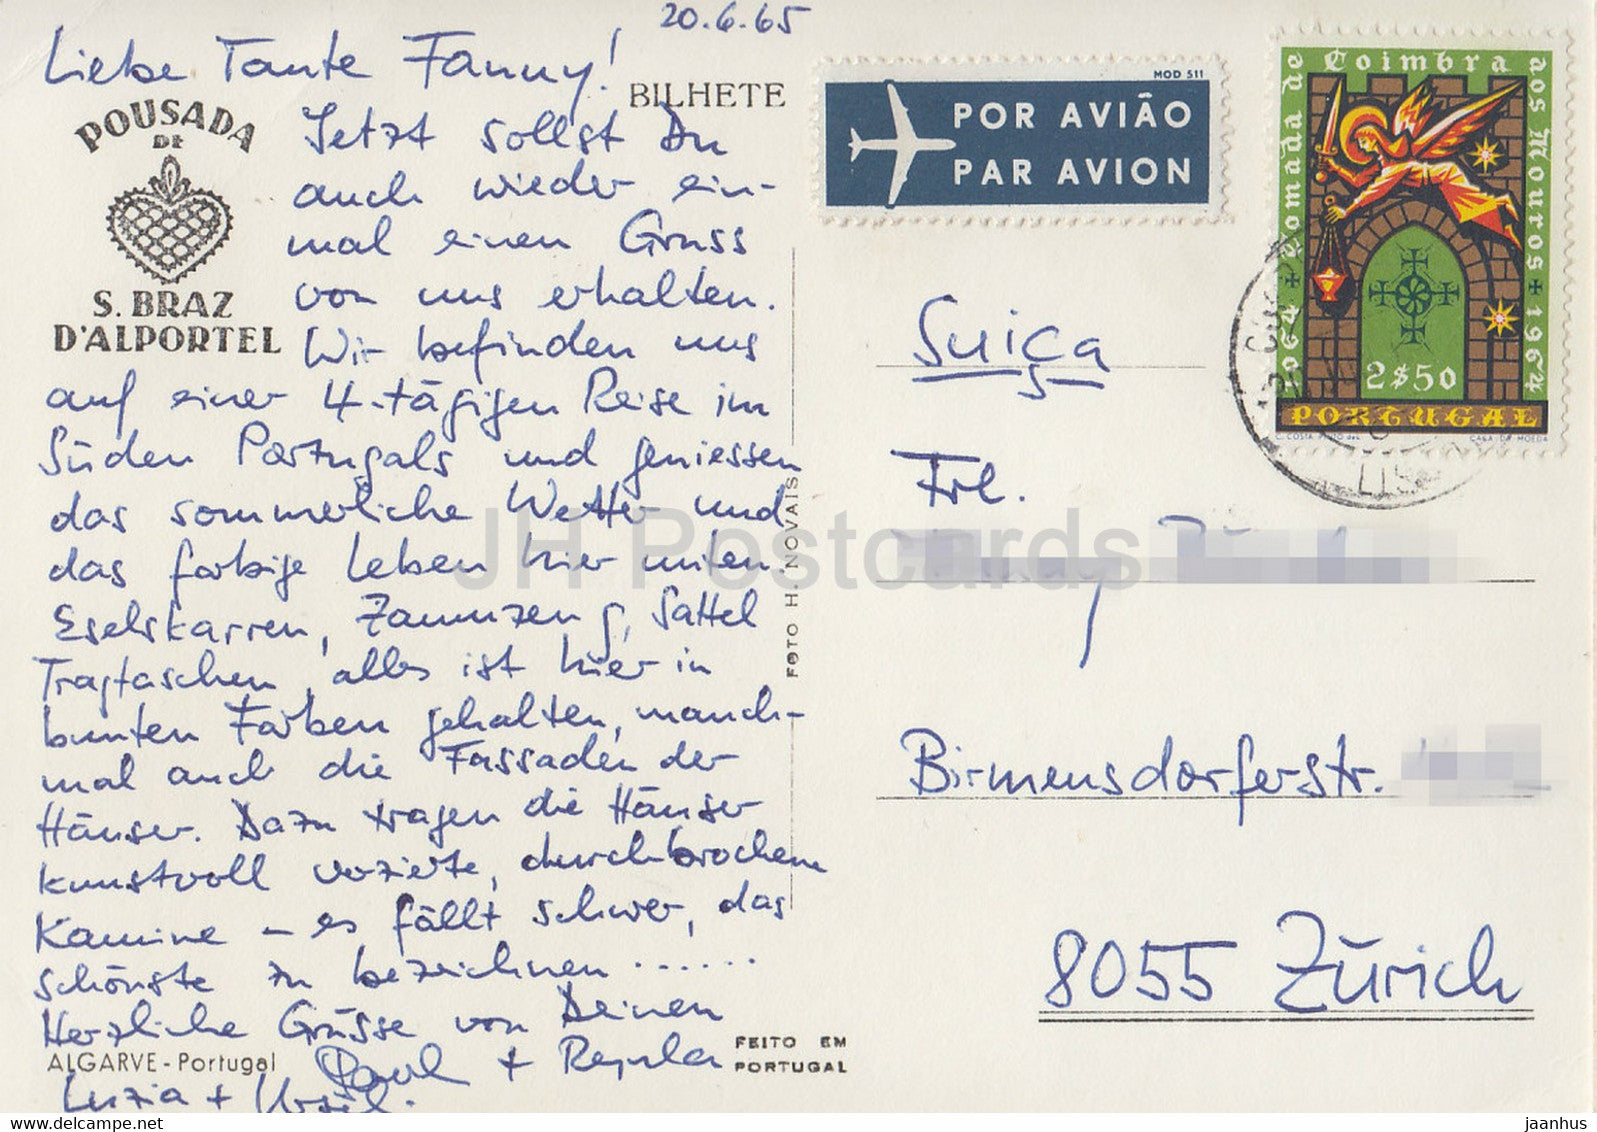 20.6.65
Liebe Tante Fanny!
BILHETE
POUSADA
DE
S. BRAZ
D'ALPORTEL
Jetzt sollst Du
auch wieder ein-
mal einen Gruss
von uns erhalten.
Wir befinden uns
auf einer 4-tägigen Reise im
Süden Portugals und geniessen
das sommerliche Wetter und
das farbige Leben hier unten.
Eselskarren, Zaumzeug, Sattel
Tragtaschen, alles ist hier in
bunten Farben gehalten, manch-
mal auch die Fassaden der
Häuser. Dazu tragen die Häuser
kunstvoll verzierte, durchbrochene
Kamine – es fällt schwer, das
schönste zu bezeichnen ......
Herzliche Grüsse von Deinen
Paul + Regula
Luzia +
ALGARVE - Portugal
FEITO EM
PORTUGAL
FOTO H. NOVAIS
MOD 511
POR AVIÃO
PAR AVION
1064 Tomada de Coimbra aos Mouros 1964
2$50
PORTUGAL
C. COSTA PINTO del.
CASA DA MOEDA
Suiça
Frl.
Birmensdorferstr.
8055 Zürich
JH Postcards
delcampe.net
jaanhus